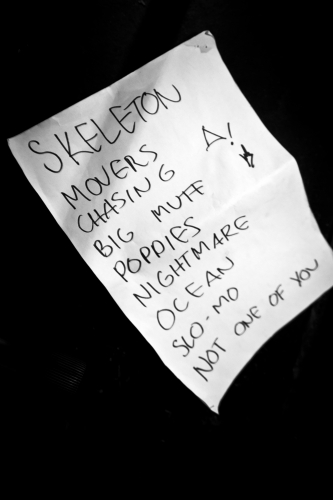 SKELETON
MOVERS A!
CHASING
BIG MUFF
POPPIES
NIGHTMARE
OCEAN
SLO-MO
NOT ONE OF YOU